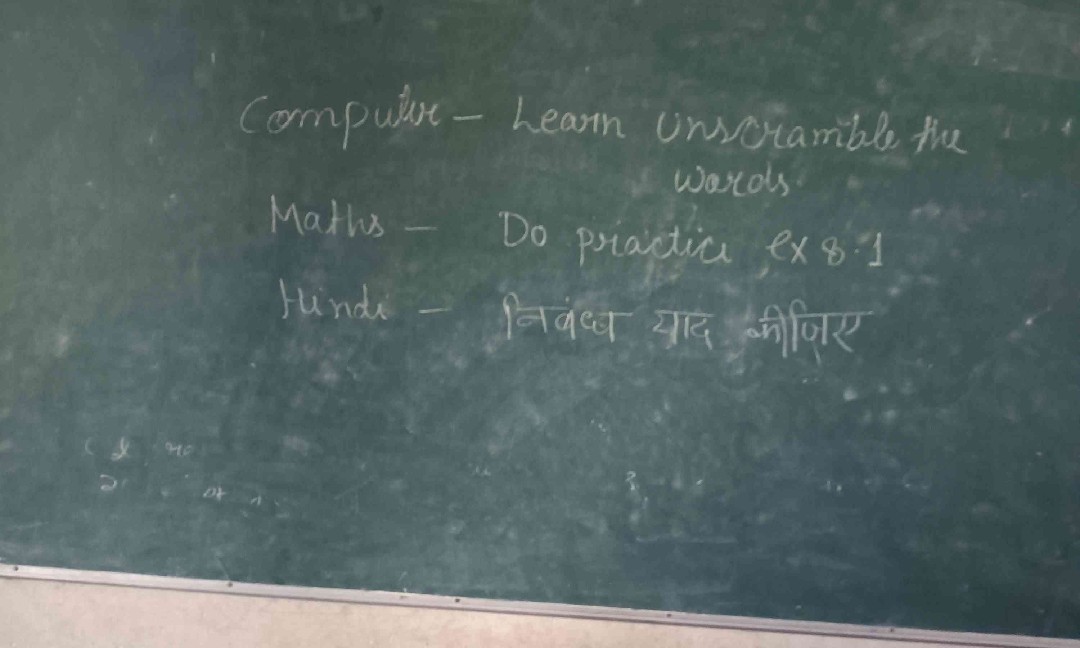 Computer - Learn Unscramble the
words.
Maths - Do practice ex 8.1
Hindi - निबंध याद कीजिए